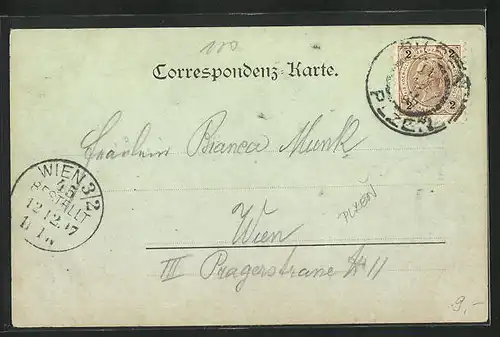 Correspondenz-Karte.
2
2
PLZEŇ
Fräulein Bianca Munk
WIEN 3/2
45
BESTELLT
12.12.97
Wien
PLZEŇ
III Pragerstrasse № 11
9,-